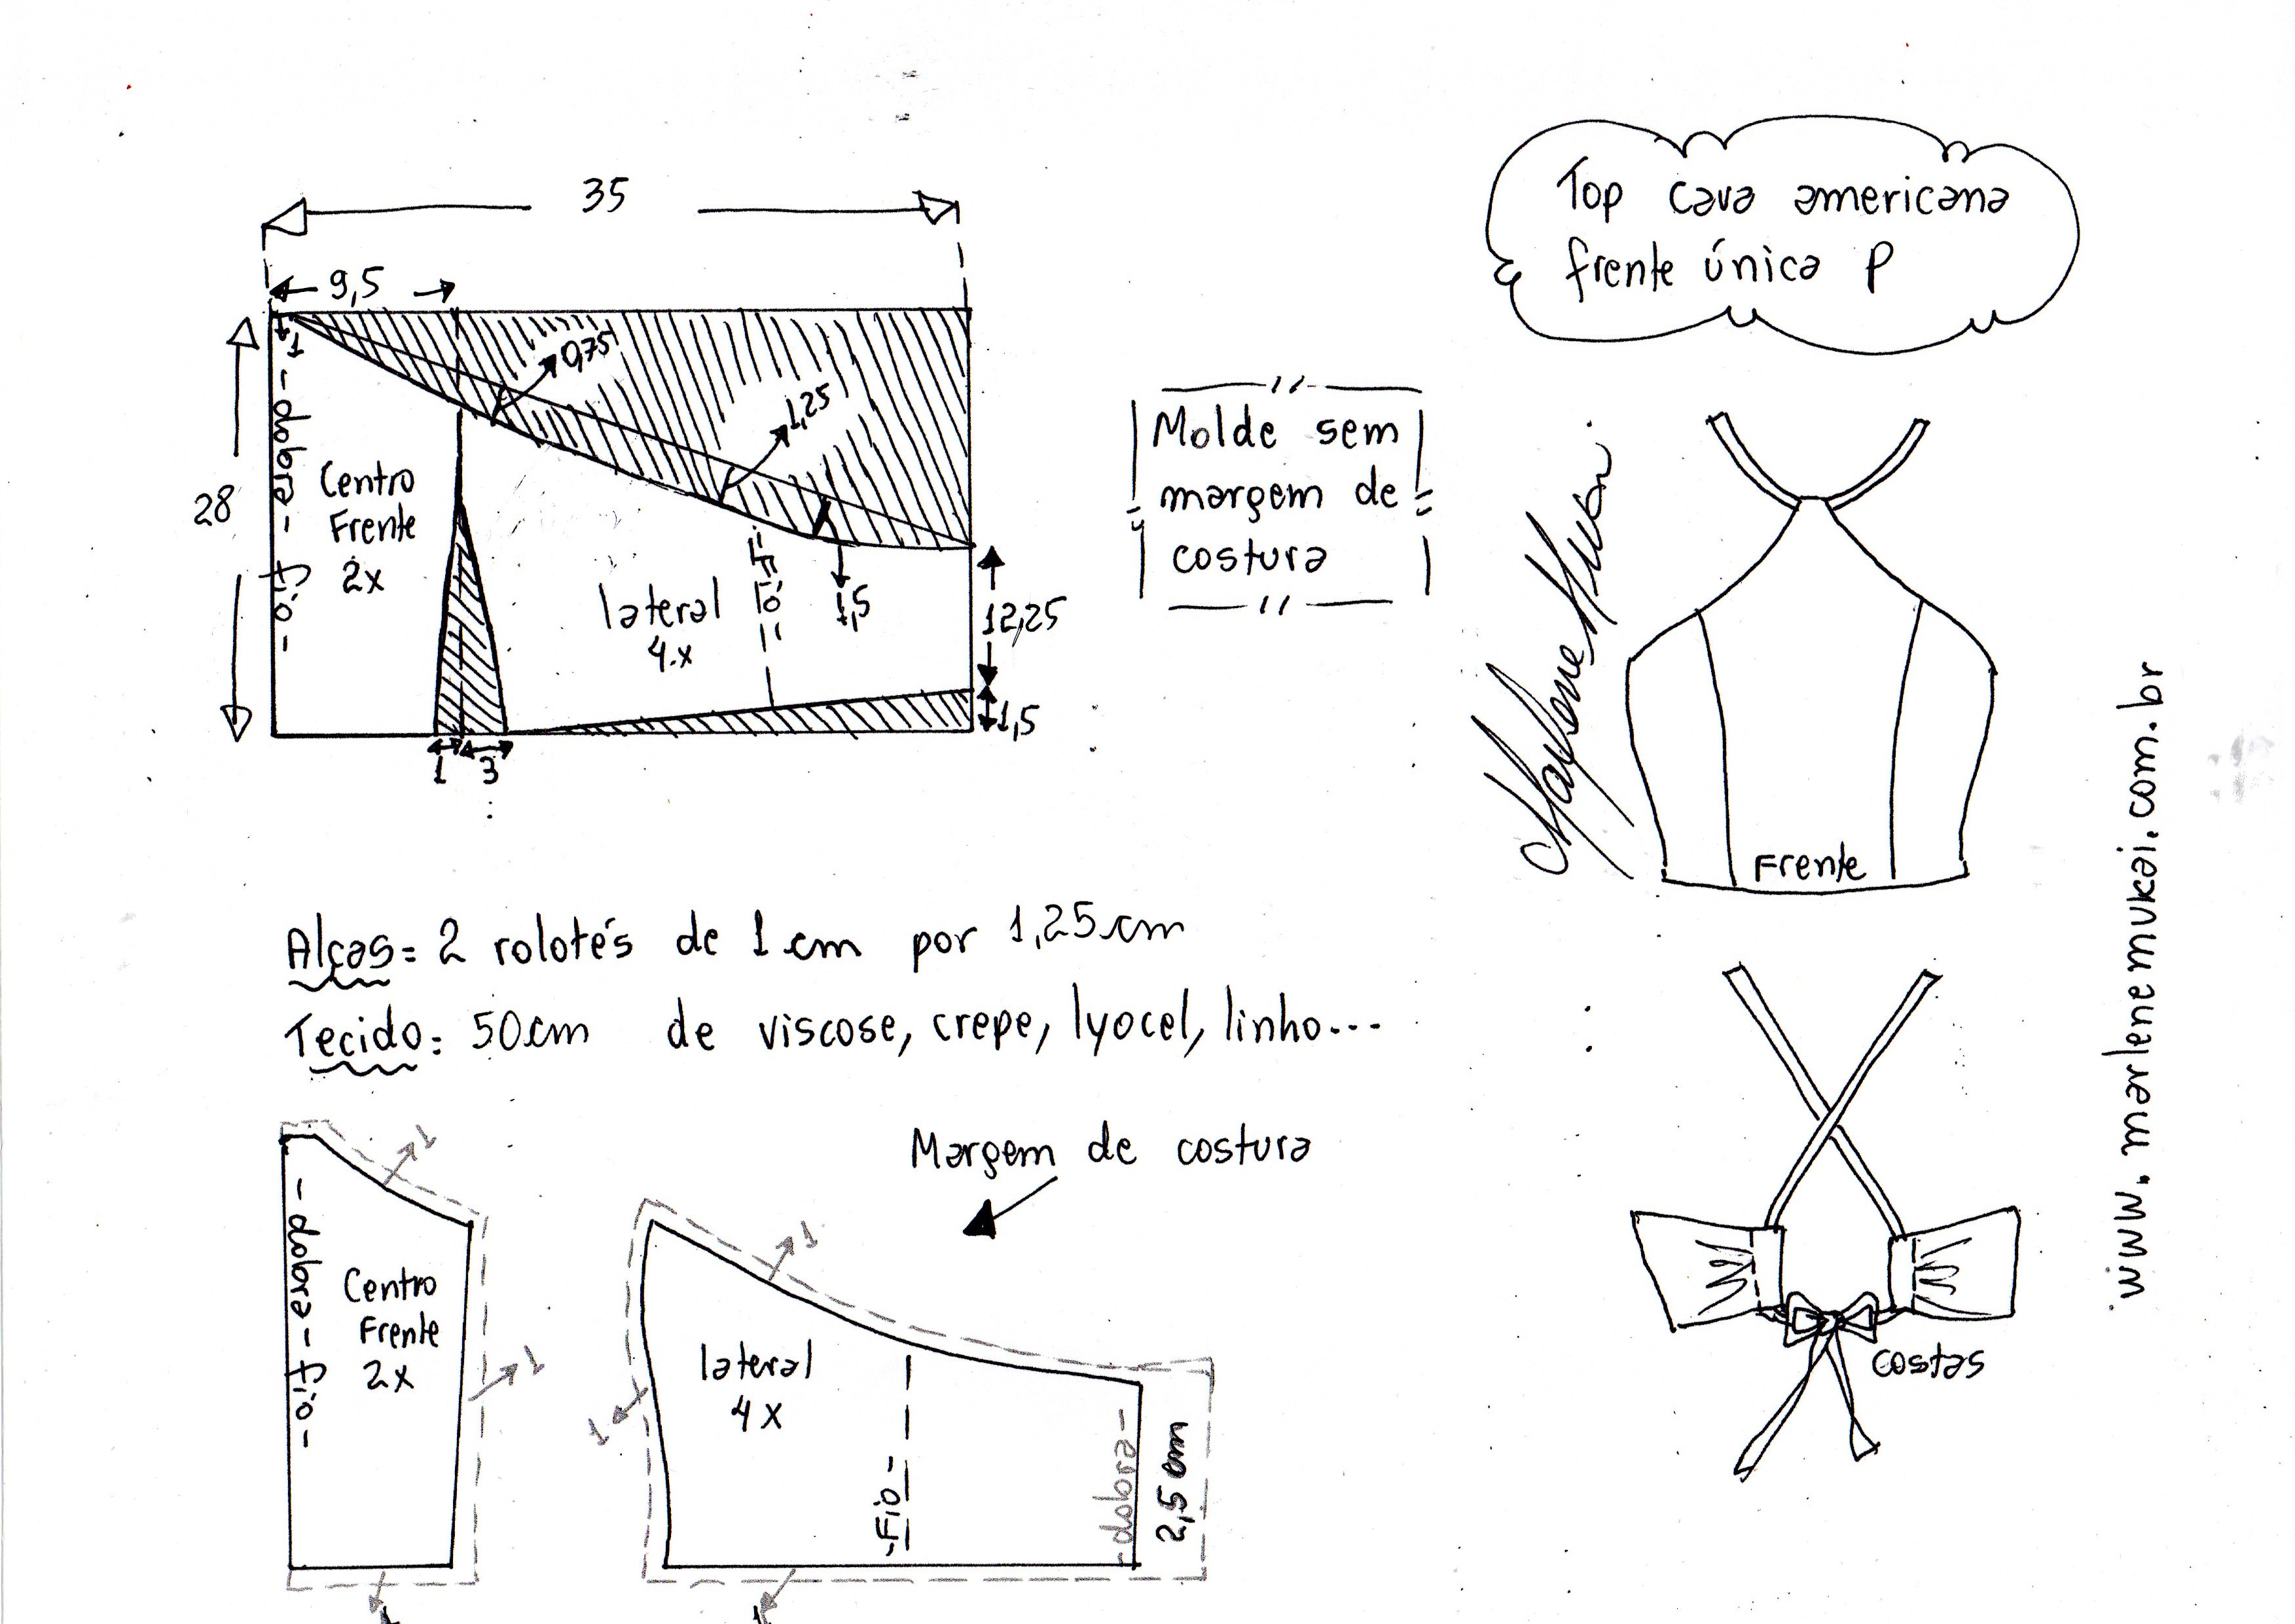 35
9,5
1
- dobra - fio -
Centro
Frente
2x
28
0,75
1,25
lateral
4x
- Fio -
1,5
12,25
1,5
1
3
Molde sem
margem de
costura
Top cava americana
frente única P
Frente
www.marlenemukai.com.br
Alças = 2 rolotés de 1 cm por 1,25 cm
Tecido: 50 cm de viscose, crepe, lyocel, linho...
Margem de costura
1
- dobra - fio -
Centro
Frente
2x
1
1
1
lateral
4x
1
- Fio -
- dobra -
2,5 cm
1
costas